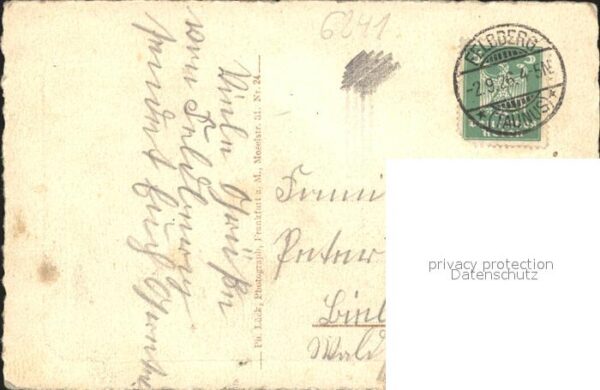 6241
FELDBERG
-2.9.26.4-5N.
*(TAUNUS)*
Viele Grüße
vom Feldberg
sendet Euch
Ph. Lück, Photograph, Frankfurt a. M., Moselstr. 31. Nr. 24
Fami
Peter
Biel
Wald
privacy protection
Datenschutz